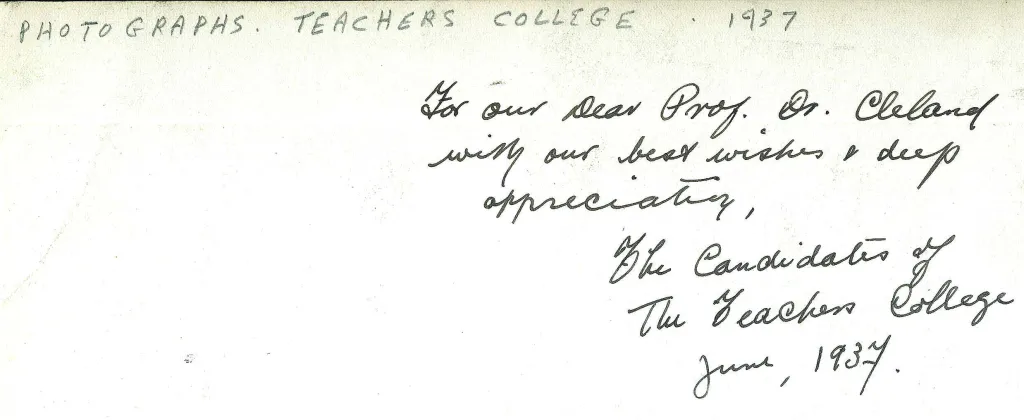 PHOTOGRAPHS. TEACHERS COLLEGE . 1937
For our Dear Prof. Dr. Cleland
with our best wishes & deep
appreciation,
The Candidates of
The Teachers College
June, 1937.